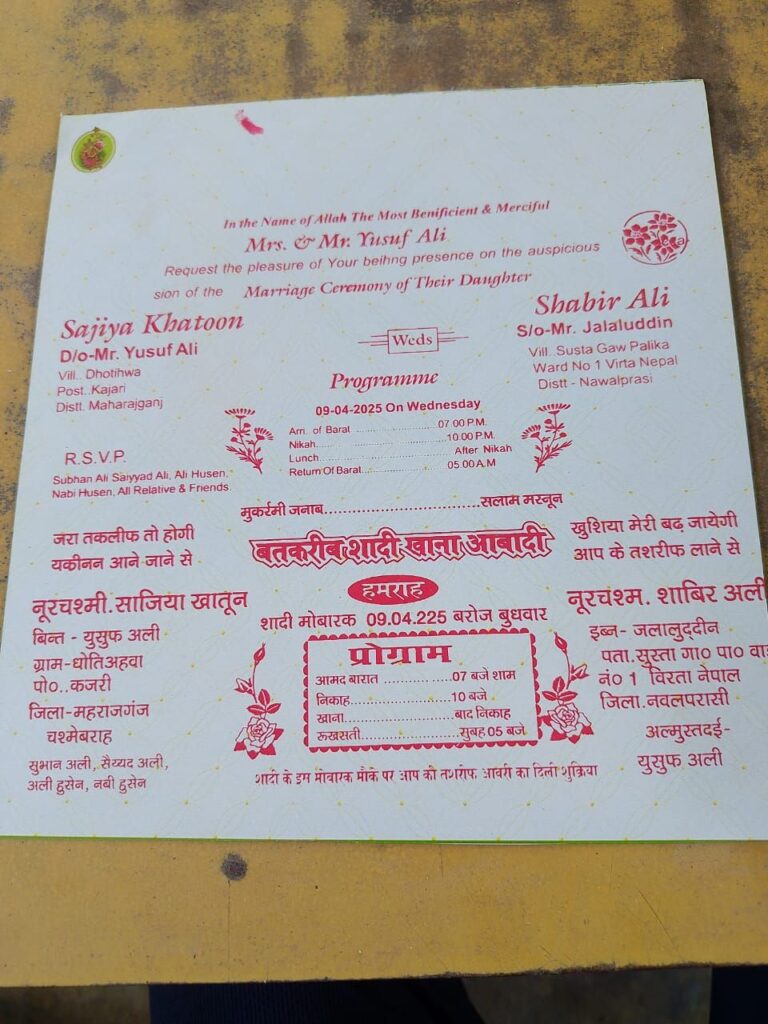 In the Name of Allah The Most Benificient & Merciful
Mrs. & Mr. Yusuf Ali
Request the pleasure of Your beihng presence on the auspicious
sion of the Marriage Ceremony of Their Daughter
Sajiya Khatoon
D/o-Mr. Yusuf Ali
Vill.. Dhotihwa
Post.. Kajari
Distt. Maharajganj
Weds
Shabir Ali
S/o-Mr. Jalaluddin
Vill.. Susta Gaw Palika
Ward No 1 Virta Nepal
Distt - Nawalprasi
Programme
09-04-2025 On Wednesday
Arri. of Barat ........................07.00 P.M.
Nikah....................................10.00 P.M.
Lunch.................................... After Nikah
Return Of Barat........................05.00 A.M
R.S.V.P.
Subhan Ali Saiyyad Ali, Ali Husen,
Nabi Husen, All Relative & Friends
मुकर्रमी जनाब....................................सलाम मस्नून
जरा तकलीफ तो होगी
यकीनन आने जाने से
बतकरीब शादी खाना आबादी
खुशिया मेरी बढ़ जायेगी
आप के तशरीफ लाने से
हमराह
नूरचश्मी.साजिया खातून
बिन्त - युसुफ अली
ग्राम-धोतिअहवा
पो०..कजरी
जिला-महराजगंज
शादी मोबारक 09.04.225 बरोज बुधवार
नूरचश्म. शाबिर अली
इब्न- जलालुददीन
पता.सुस्ता गा० पा० वा
नं० 1 विरता नेपाल
जिला.नवलपरासी
प्रोग्राम
आमद बारात ..............07 बजे शाम
निकाह..........................10 बजे
खाना........................बाद निकाह
रूखसती....................सुबह 05 बजे
चश्मेबराह
सुभान अली, सैय्यद अली,
अली हुसेन, नबी हुसेन
अल्मुस्तदई-
युसुफ अली
शादी के इस मोबारक मौके पर आप की तशरीफ आवरी का दिली शुक्रिया